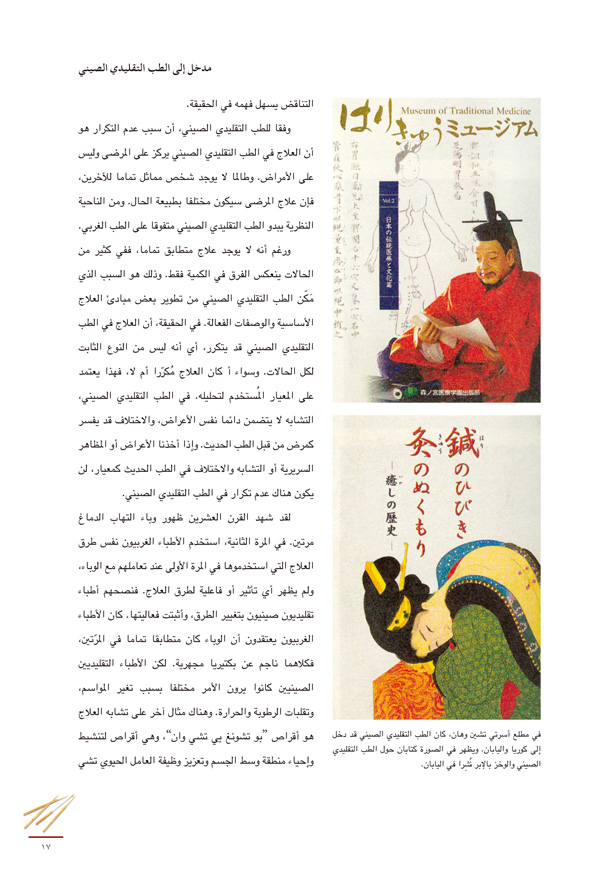 مدخل إلى الطب التقليدي الصيني
التناقض يسهل فهمه في الحقيقة.
وفقا للطب التقليدي الصيني، أن سبب عدم التكرار هو
أن العلاج في الطب التقليدي الصيني يركز على المرضى وليس
على الأمراض. وطالما لا يوجد شخص مماثل تماما للآخرين،
فإن علاج المرضى سيكون مختلفا بطبيعة الحال. ومن الناحية
النظرية يبدو الطب التقليدي الصيني متفوقا على الطب الغربي.
ورغم أنه لا يوجد علاج متطابق تماما، ففي كثير من
الحالات ينعكس الفرق في الكمية فقط. وذلك هو السبب الذي
مَكّن الطب التقليدي الصيني من تطوير بعض مبادئ العلاج
الأساسية والوصفات الفعالة. في الحقيقة، أن العلاج في الطب
التقليدي الصيني قد يتكرر، أي أنه ليس من النوع الثابت
لكل الحالات. وسواء أ كان العلاج مُكرّرا أم لا، فهذا يعتمد
على المعيار المُستخدم لتحليله. في الطب التقليدي الصيني،
التشابه لا يتضمن دائما نفس الأعراض، والاختلاف قد يفسر
كمرض من قبل الطب الحديث. وإذا أخذنا الأعراض أو المظاهر
السريرية أو التشابه والاختلاف في الطب الحديث كمعيار، لن
يكون هناك عدم تكرار في الطب التقليدي الصيني.
لقد شهد القرن العشرين ظهور وباء التهاب الدماغ
مرتين. في المرة الثانية، استخدم الأطباء الغربيون نفس طرق
العلاج التي استخدموها في المرة الأولى عند تعاملهم مع الوباء،
ولم يظهر أي تأثير أو فاعلية لطرق العلاج. فنصحهم أطباء
تقليديون صينيون بتغيير الطرق، وأثبتت فعاليتها. كان الأطباء
الغربيون يعتقدون أن الوباء كان متطابقا تماما في المرّتين،
فكلاهما ناجم عن بكتيريا مجهرية. لكن الأطباء التقليديين
الصينيين كانوا يرون الأمر مختلفا بسبب تغير المواسم،
وتقلبات الرطوبة والحرارة. وهناك مثال آخر على تشابه العلاج
هو أقراص ”بو تشونغ يي تشي وان“، وهي أقراص لتنشيط
وإحياء منطقة وسط الجسم وتعزيز وظيفة العامل الحيوي تشي
Museum of Traditional Medicine
はりきゅうミュージアム
Vol.2
日本の伝統医療と文化篇
森ノ宮医療学園出版部
鍼のひびき
はり
灸のぬくもり
きゅう
―癒しの歴史
في مطلع أسرتي تشين وهان، كان الطب التقليدي الصيني قد دخل
إلى كوريا واليابان. ويظهر في الصورة كتابان حول الطب التقليدي
الصيني والوخز بالإبر نُشِرا في اليابان.
١٧